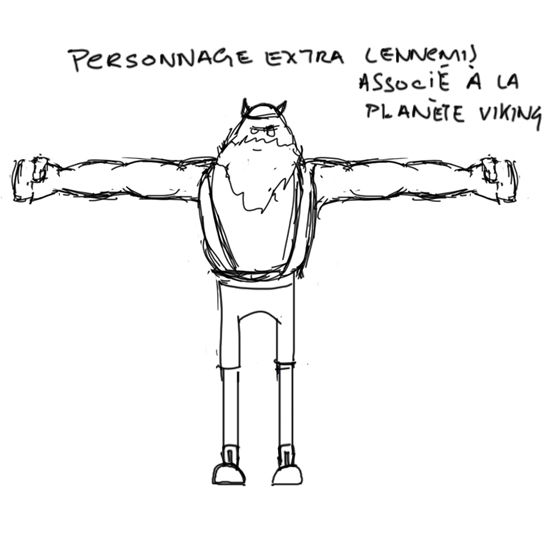 PERSONNAGE EXTRA (ENNEMI)
ASSOCIÉ À LA
PLANÈTE VIKING